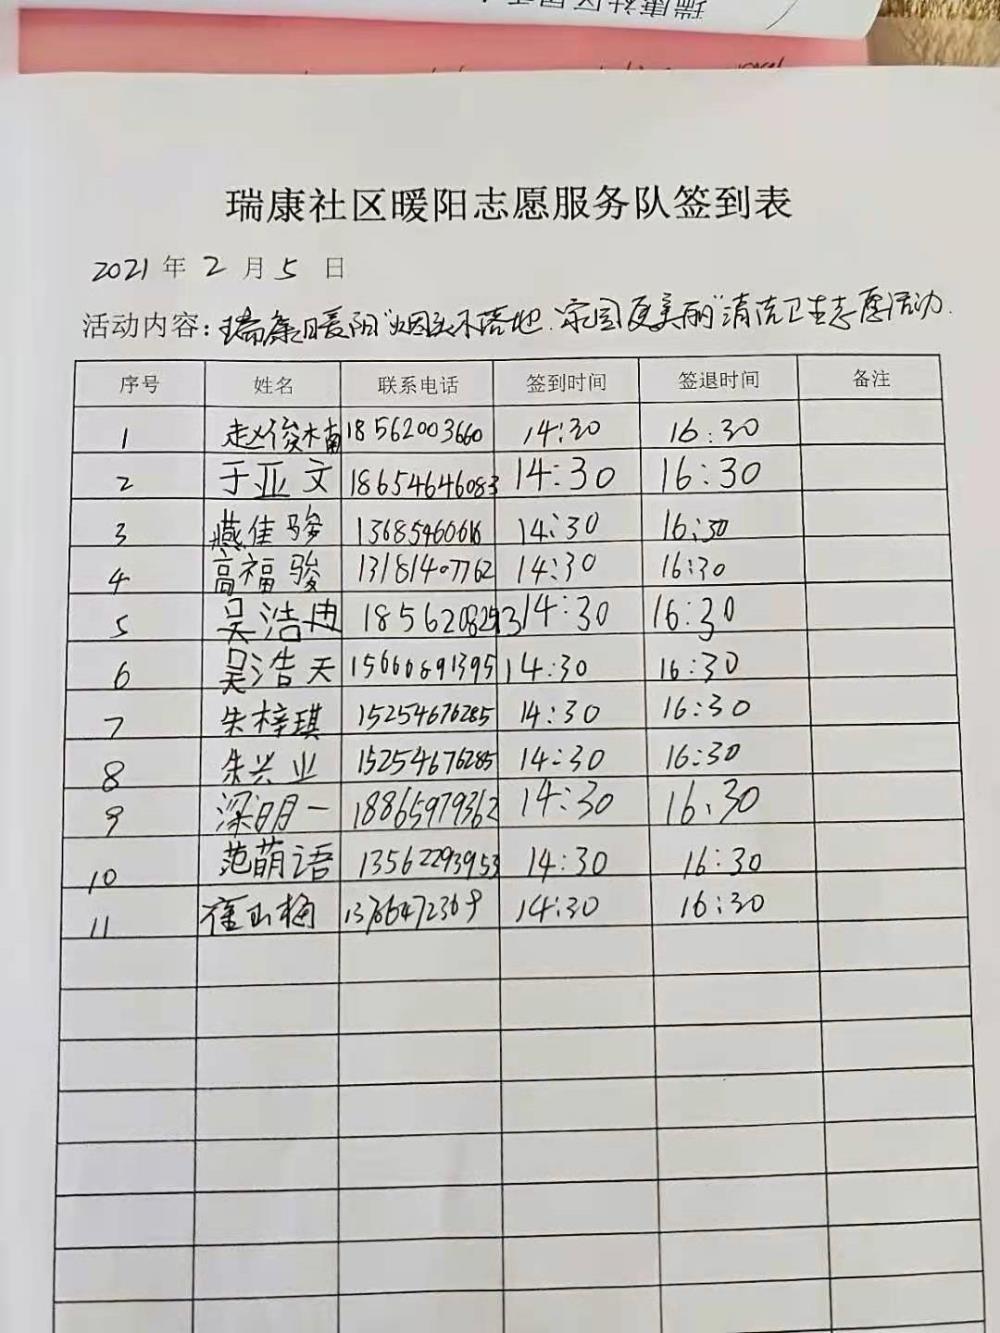 瑞康社区暖阳志愿服务队签到表
2021年2月5日
活动内容:瑞康暖阳"烟头不落地.家园更美丽"清洁卫生志愿活动.
序号 姓名 联系电话 签到时间 签退时间 备注
1 赵俊楠 18562003660 14:30 16:30
2 于亚文 18654646083 14:30 16:30
3 燕佳骏 13685460616 14:30 16:30
4 高福骏 13181407762 14:30 16:30
5 吴浩冉 18562082593 14:30 16:30
6 吴浩天 15666891395 14:30 16:30
7 朱梓琪 15254676285 14:30 16:30
8 朱兴业 15254676285 14:30 16:30
9 深明一 18865979362 14:30 16:30
10 范萌语 13562293953 14:30 16:30
11 14:30 16:30